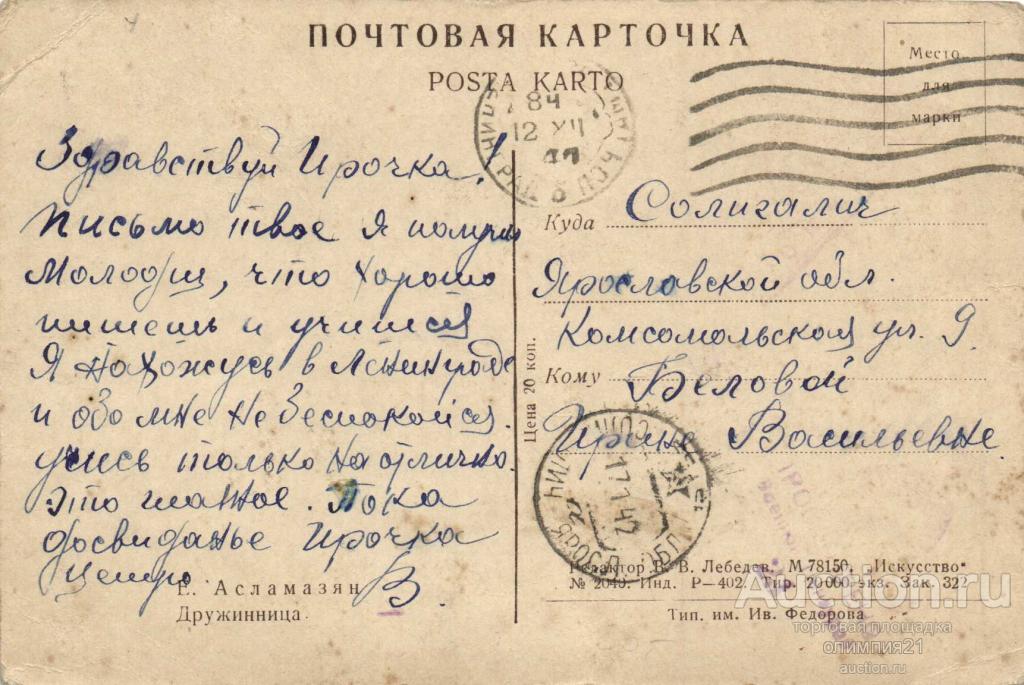 ПОЧТОВАЯ КАРТОЧКА
POSTA KARTO
Место
для
марки
84
12 XII
47
Здравствуй Ирочка!
Письмо твое я получил
Молодец, что хорошо
пишешь и учишься
Я нахожусь в Ленинграде
и обо мне не беспокойся.
учись только на отлично.
Это главное. Пока
досвиданье Ирочка
Целую.
В.
Е. Асламазян
Дружинница.
Цена 20 коп.
Куда Солигалич
Ярославской обл.
Комсомольская ул. 9.
Кому Беловой
Ирине Васильевне.
Редактор В. В. Лебедев. М 78150. „Искусство“
№ 2049. Инд. Р—402. Тир. 20 000 экз. Зак. 322
Тип. им. Ив. Федорова
Auction.ru
торговая площадка
олимпия21
auction.ru